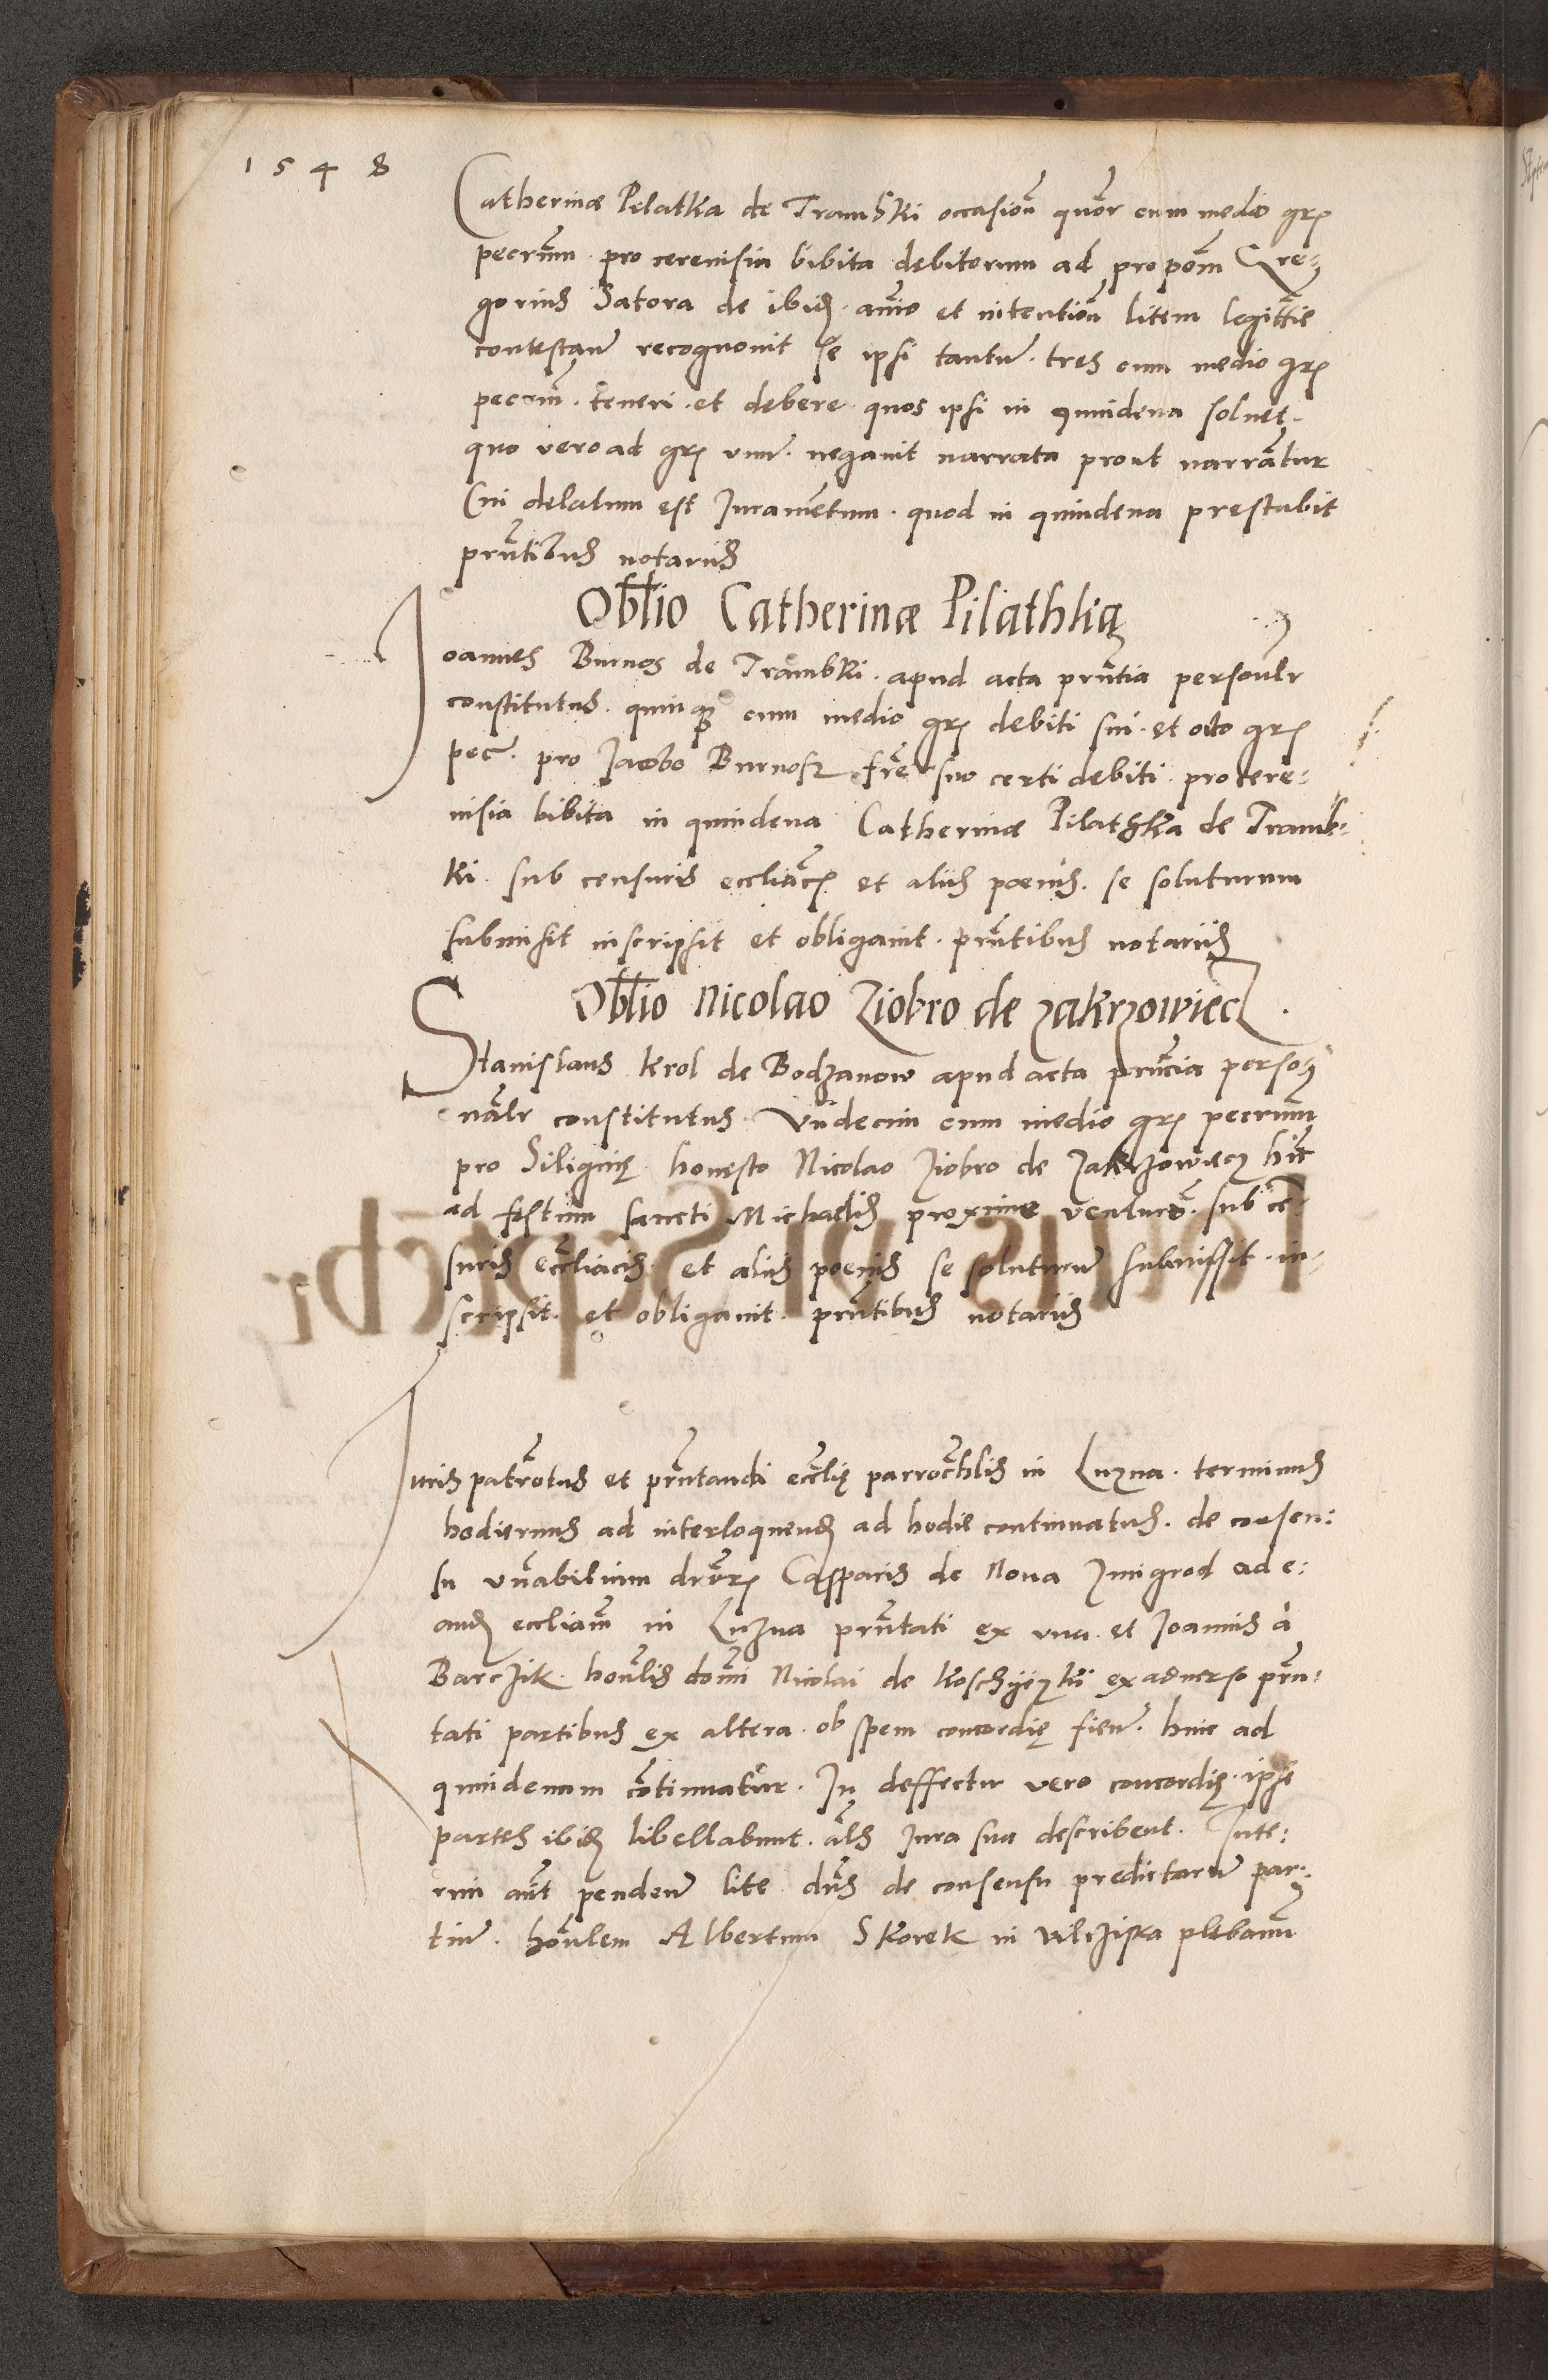 1548
Catherinæ Pilatka de Trambki occasiō̄n quōr cum medio grʒ
pecrūm pro cerevisia bibita debitorum ad propōm Gre-
gorius Satora de ibid. aīo et intentiōn litem legittīe
contestan̄ recognovit se ipsi tantum̄ tres cum medio grʒ
pecūn. teneri et debere quos ipsi in quindena solvet.
quo vero ad grʒ unū. negavit narrata prout narrātur
Cui delatum est Juramētum. quod in quindena prestabit
prn̄tibus notariis
Obl̄io Catherinæ Pilathką
Joannes Burnos de Trambki. apud acta prn̄tia personlr
constitutus. quinqʒ cum medio grʒ debiti sui et octo grʒ
pec̄. pro Jacobo Burnosz fr̄e suo certi debiti pro cere-
visia bibita in quindena Catherinæ Pilathka de Tramb-
ki. sub censuris eccliāc̄ʒ et aliis poenis. se soluturum
submisit inscripsit et obligavit. prn̄tibus notariis
Obl̄io Nicolao Ziobro de Zakrzowiecz.
Stanislaus Krol de Bodzanow apud acta prn̄cia perso-
nalr constitutus. Undecim cum medio grʒ pecrūm
pro Siliginę honesto Nicolao Ziobro de Zakrzowiecz hīc
ad festum sancti Michaelis proxime venturū. sub cē-
suris eccl̄iacis et aliis poenis se soluturum̄ submissit in-
scripsit et obligavit prn̄tibus notariis
Juris patrōtus et prn̄tandi eccl̄ię parrochl̄is in Luzna. terminus
hodiernus ad interloquend̄ ad hodie continuatus. de consen:
su vn̄abilium dn̄orʒ Casparis de Nova Zmigrod ad e:
and̄ eccliām in Luzna prn̄tati ex una et Joannis a
Barczik. honl̄is domī Nicolai de Koschyczki ex adverso prn̄:
tati partibus ex altera. ob spem concordię fien̄. hinc ad
quindenam cōtinuatur. In deffectu vero concordię. ipsæ
partes ibid̄ libellabunt. al̄s Jura sua describent. Inte:
rim aūt penden̄ lite dn̄s de consensu predictarum̄ par-
tium̄. hon̄lem Albertum Skorek in Vilczyska plebanū